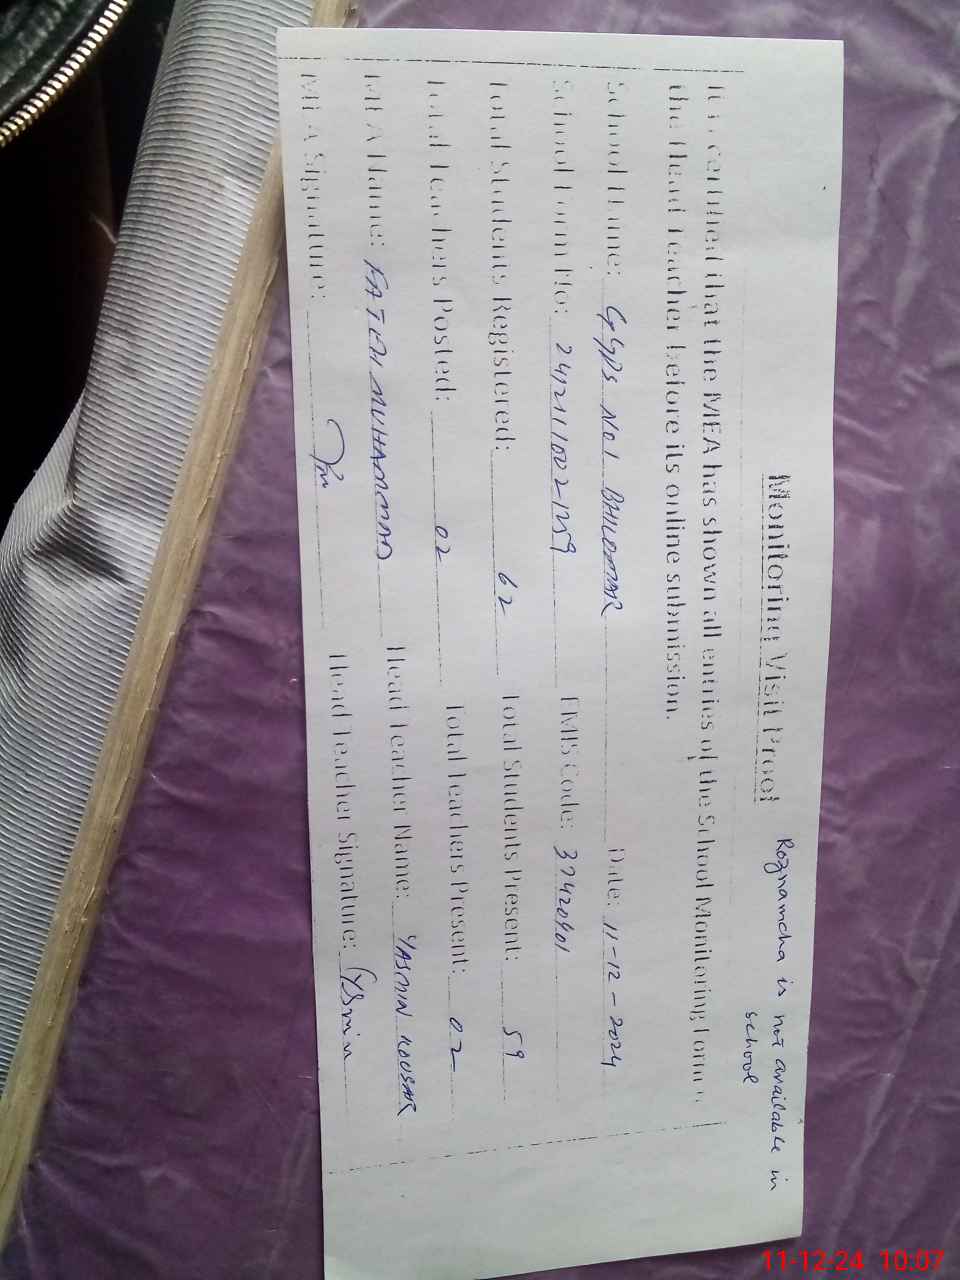 Monitoring Visit Proof
Roznamcha is not available in
school
It is certified that the MEA has shown all entries of the School Monitoring Form to
the Head Teacher before its online submission.
School Name: GGPS No 1 Date: 11-12-2024
School Form No: EMIS Code: 37420401
Total Students Registered: 62 Total Students Present: 59
Total Teachers Posted: 02 Total Teachers Present: 02
MEA Name: FATEH MUHAMMAD Head Teacher Name: YASMIN KOUSAR
MEA Signature: Head Teacher Signature: Ysmin
11-12-24 10:07